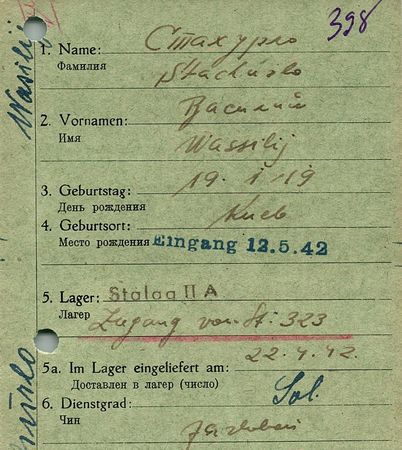 398
Wasilij
Стахурло
1. Name: Stachurlo
Фамилия
Василий
2. Vornamen:
Имя
Wassilij
3. Geburtstag: 19. I. 19
День рождения
4. Geburtsort: Киев
Место рождения Eingang 12.5.42
5. Lager: Stalag II A
Лагер Zugang von St. 323
22.4.42.
5a. Im Lager eingeliefert am:
Доставлен в лагер (число)
6. Dienstgrad: Sol.
Чин